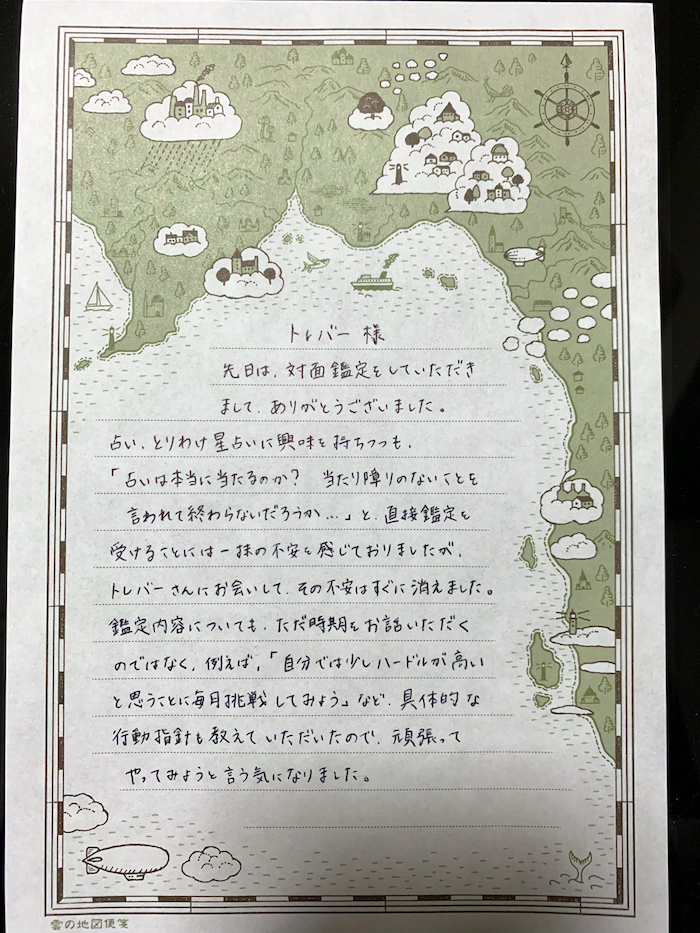 トレバー 様
先日は、対面鑑定をしていただき
まして、ありがとうございました。
占い、とりわけ星占いに興味を持ちつつも、
「占いは本当に当たるのか? 当たり障りのないことを
言われて終わらないだろうか…」と、直接鑑定を
受けることには一抹の不安を感じておりましたが、
トレバーさんにお会いして、その不安はすぐに消えました。
鑑定内容についても、ただ時期をお話いただく
のではなく、例えば、「自分では少しハードルが高い
と思うことに毎月挑戦してみよう」など、具体的な
行動指針も教えていただいたので、頑張って
やってみようと言う気になりました。
雲の地図便箋